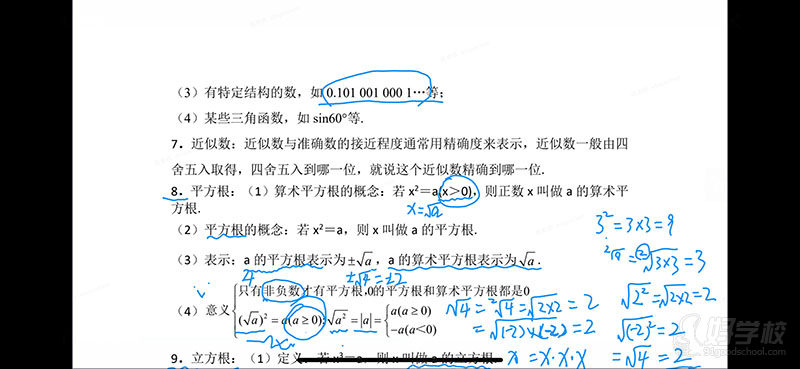 （3）有特定结构的数，如 0.101 001 000 1…等；
（4）某些三角函数，如 sin60°等.
7．近似数：近似数与准确数的接近程度通常用精确度来表示，近似数一般由四
舍五入取得，四舍五入到哪一位，就说这个近似数精确到哪一位.
8．平方根：（1）算术平方根的概念：若 x²＝a(x＞0)，则正数 x 叫做 a 的算术平
方根.
x=√a
（2）平方根的概念：若 x²＝a，则 x 叫做 a 的平方根.
3²=3×3=9
（3）表示：a 的平方根表示为±√a，a 的算术平方根表示为√a．
²√9=²√3×3=3
4
±√4=±2
只有非负数才有平方根,0的平方根和算术平方根都是0
（4）意义
(√a)²=a(a≥0); √a²=|a|=
a(a≥0)
−a(a<0)
√4=²√4=√2×2=2
=√(-2)×(-2)=2
√2²=√2×2=2
√(-2)²=2
=√4=2
9．立方根：（1）定义：若 x³＝a，则 x 叫做 a 的立方根.
x=x·x·x
好学校
91goodschool.com